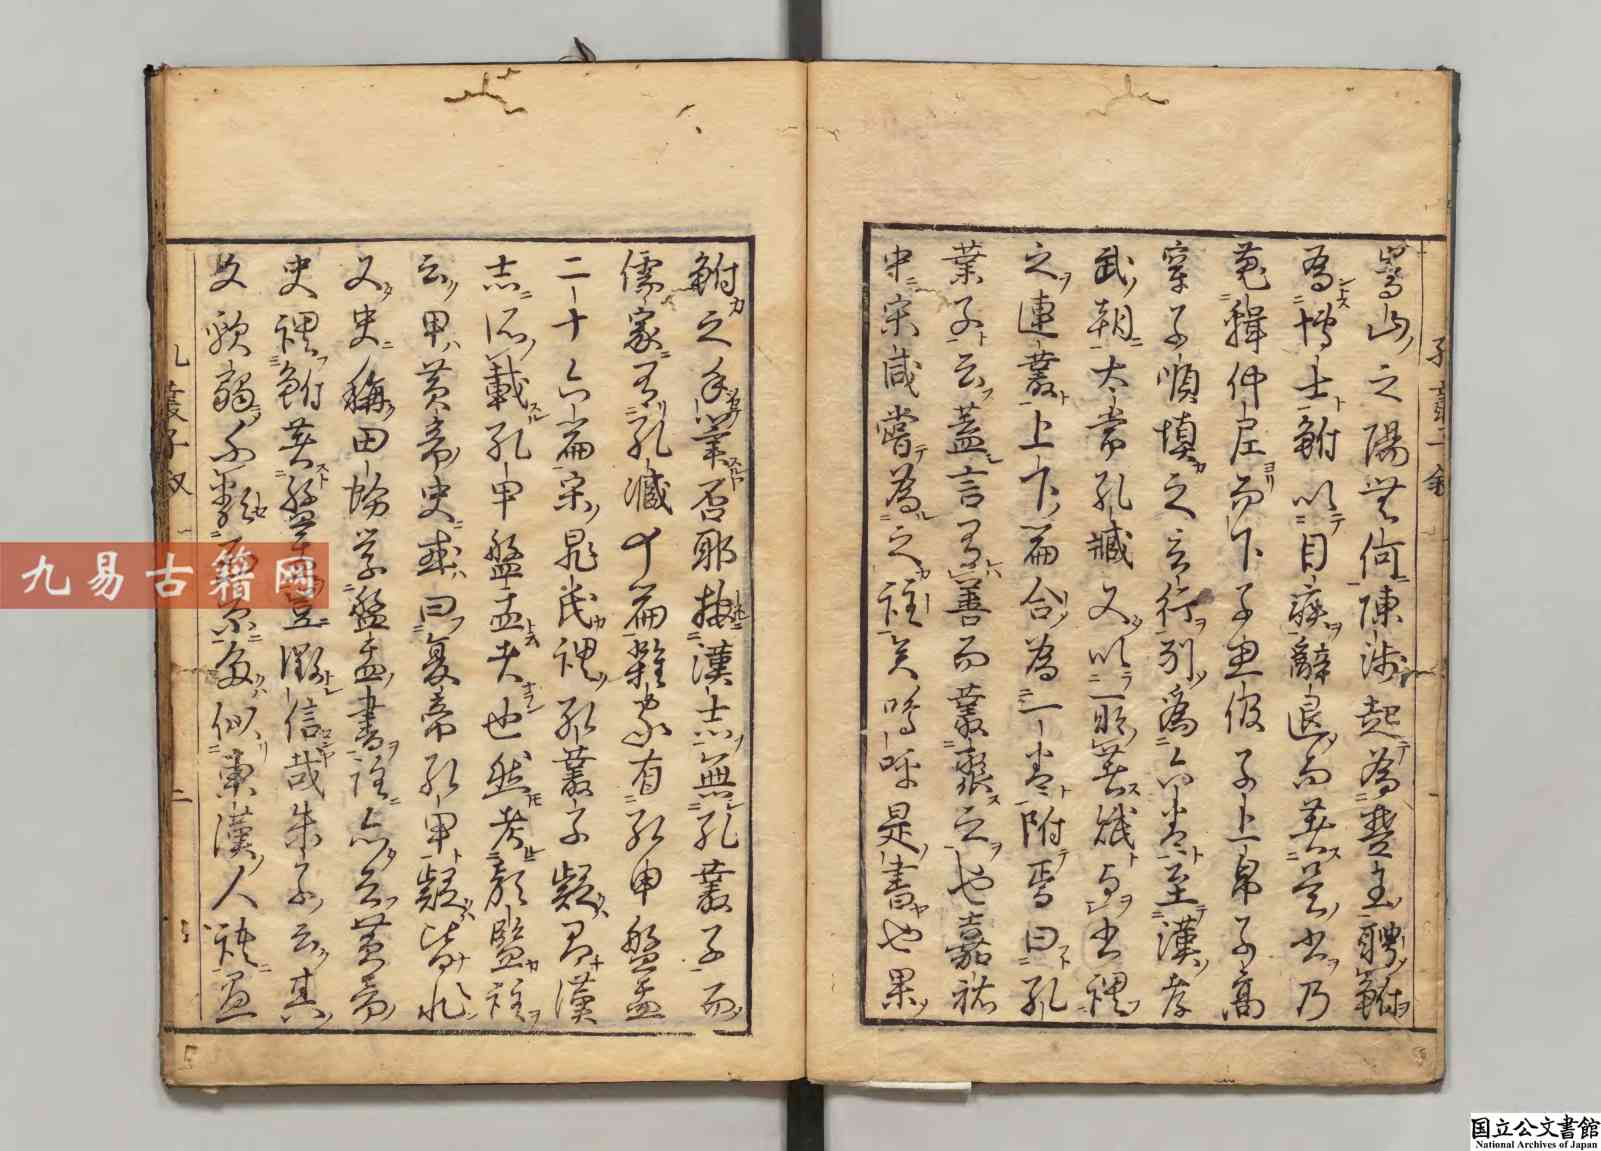 嵩山之陽無何陳涉起為楚王聘鮒
為博士鮒以目疾辭退而著是書乃
蒐輯仲尼而下子思伋子上帛子高
穿子順慎之言行列為六卷至漢孝
武朝太常孔臧又以所著賦與書
之連叢上下篇合為一卷附焉曰孔
叢子云蓋言有善而叢聚之也嘉祐
中宋咸嘗為之註矣嗚呼是書也果
鮒之手筆否耶按漢志無孔叢子而
儒家有孔臧十篇雜家有孔甲盤盂
二十六篇宋晁氏謂孔叢子疑即漢
志所載孔甲盤盂者也然考顏監註
云甲黃帝史或曰夏帝孔甲疑皆非
又史稱田蚡學盤盂書註亦云黃帝
史謂鮒著盤盂豈徵信哉朱子云其
文軟弱不西京多似東漢人
孔叢子叙
二
九易古籍网
国立公文書館
National Archives of Japan